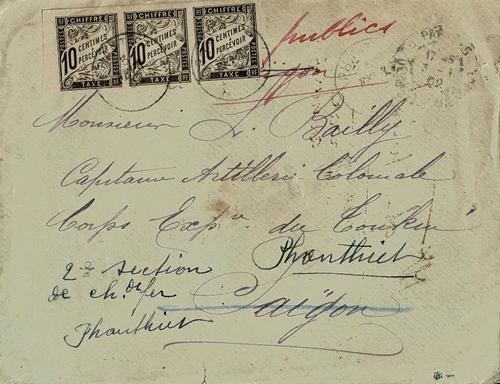 CHIFFRE CHIFFRE CHIFFRE
POSTES POSTES POSTES
10 CENTIMES À PERCEVOIR 10 CENTIMES À PERCEVOIR 10 CENTIMES À PERCEVOIR
TAXE TAXE TAXE
publics
Monsieur L. Bailly
Capitaine Artillerie Coloniale
Corps Exp. du Tonkin
Phanthiet
2e section
de ch. de fer
Saïgon
Phanthiet